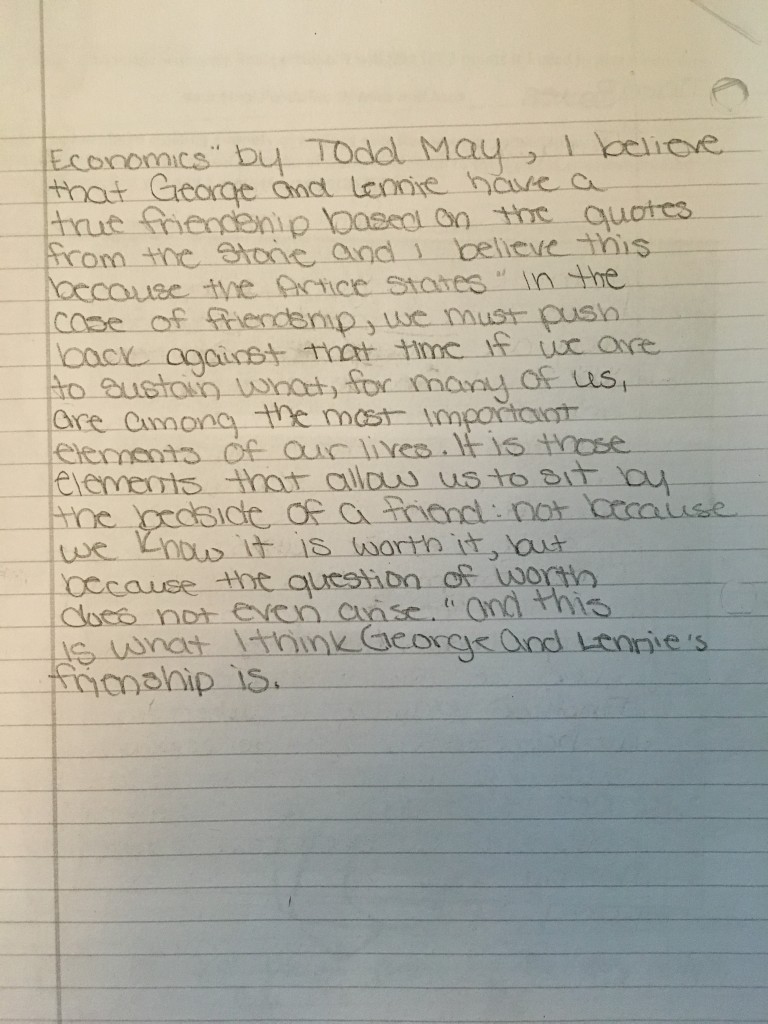 Economics" by Todd May, I believe
that George and Lennie have a
true friendship based on the quotes
from the storie and i believe this
because the Artice states "in the
case of friendship, we must push
back against that time if we are
to sustain what, for many of us,
are among the most important
elements of our lives. It is those
elements that allow us to sit by
the bedside of a friend: not because
we know it is worth it, but
because the question of worth
does not even arise." and this
is what I think George and Lennie's
frienship is.